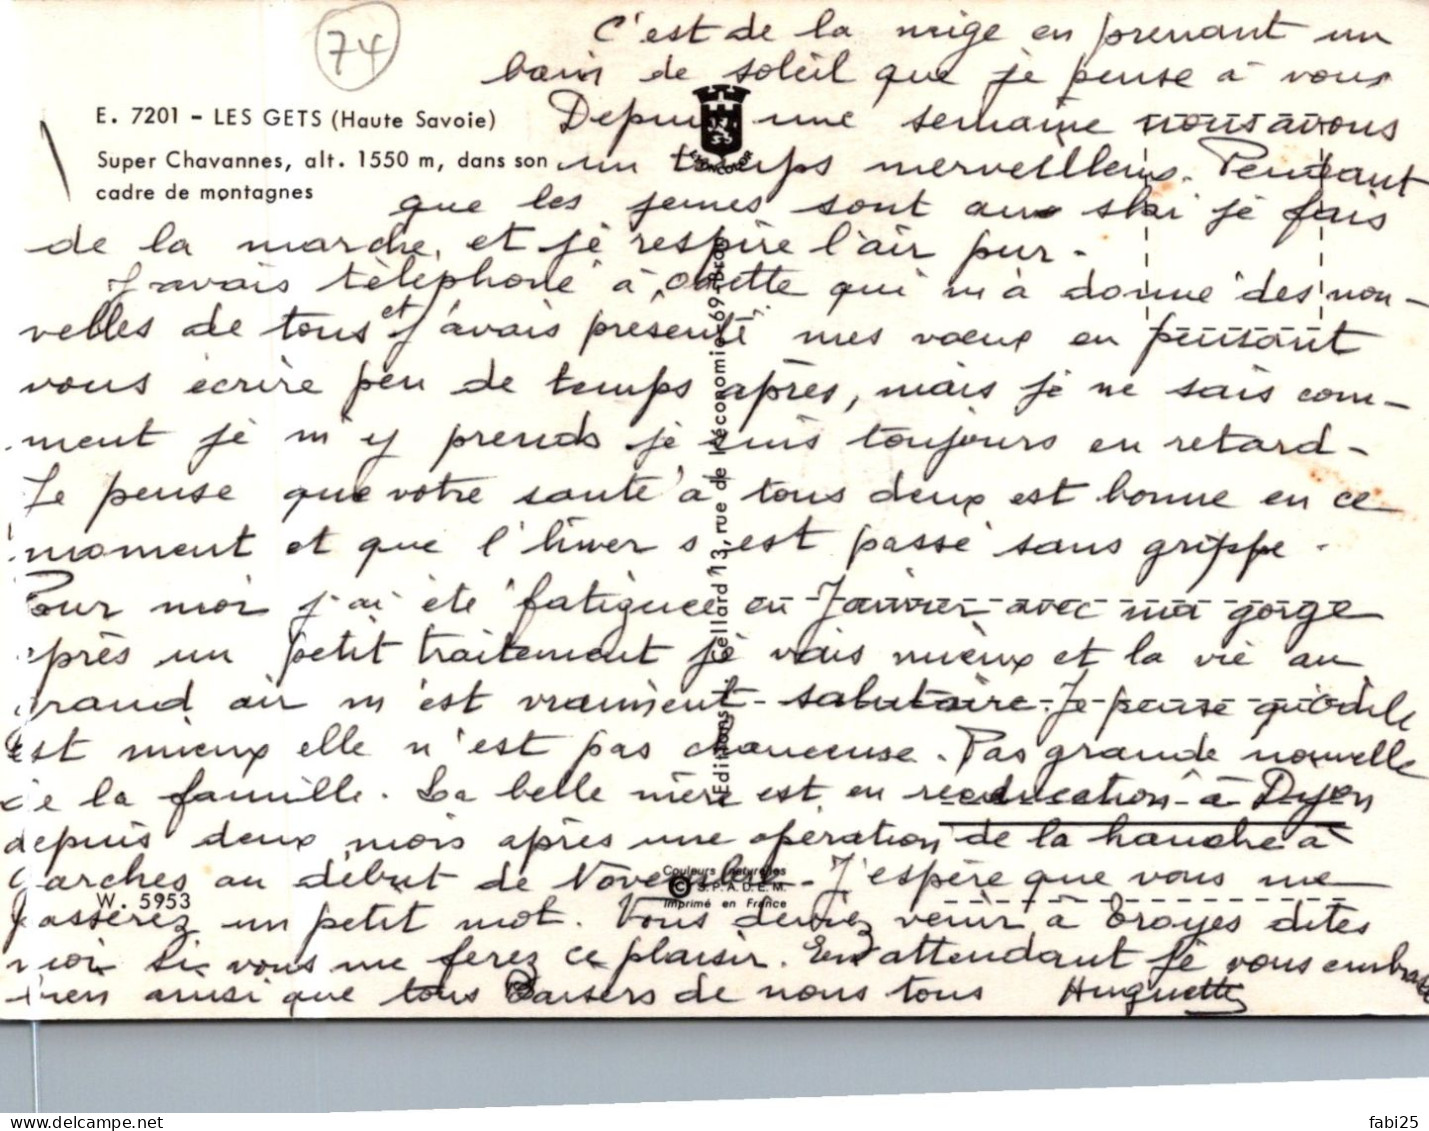 74
C'est de la neige en prenant un
bain de soleil que je pense à vous
E. 7201 - LES GETS (Haute Savoie)
Depuis une semaine nous avons
Super Chavannes, alt. 1550 m, dans son
cadre de montagnes
un temps merveilleux. Pendant
que les jeunes sont aux ski je fais
de la marche, et je respire l'air pur.
J'avais téléphoné à Odette qui m'a donné des nou-
velles de tous et j'avais présenté mes vœux en pensant
vous écrire peu de temps après, mais je ne sais com-
ment je m'y prends je suis toujours en retard.
Je pense que votre santé à tous deux est bonne en ce
moment et que l'hiver s'est passé sans grippe.
Pour moi j'ai été fatiguée en Janvier avec ma gorge
après un petit traitement je vais mieux et la vie au
grand air m'est vraiment salutaire. Je pense qu'Odile
est mieux elle n'est pas chanceuse. Pas grande nouvelle
de la famille. La belle mère est en rééducation à Dijon
depuis deux mois après une opération de la hanche à
Garches au début de Novembre. J'espère que vous me
passerez un petit mot. Vous deviez venir à Troyes dites
moi si vous me ferez ce plaisir. En attendant je vous embrasse
bien ainsi que tous Baisers de nous tous Huguette
Editions J. Cellard 13, rue de l'économie - 69-Bron
Couleurs naturelles
© S.P.A.D.E.M.
Imprimé en France
W. 5953
fabi25